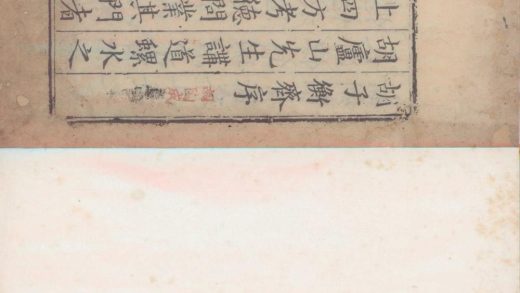 胡子衡齊序
胡廬山先生講道螺水之
上四方考德問業其門者